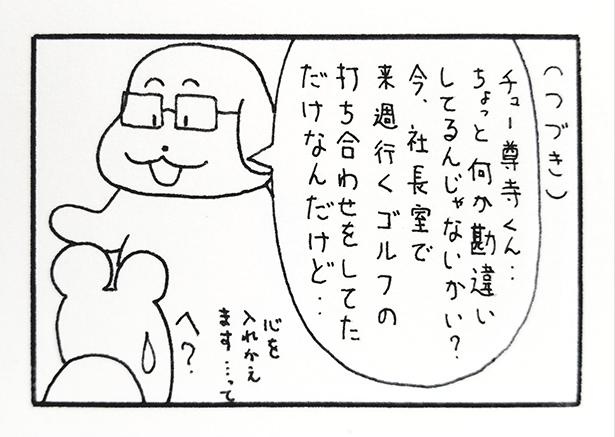 (つづき)
チュー尊寺くん‥
ちょっと何か勘違い
してるんじゃないかい?
今、社長室で
来週行くゴルフの
打ち合わせをしてた
だけなんだけど‥
へ?
心を
入れかえ
ます…って